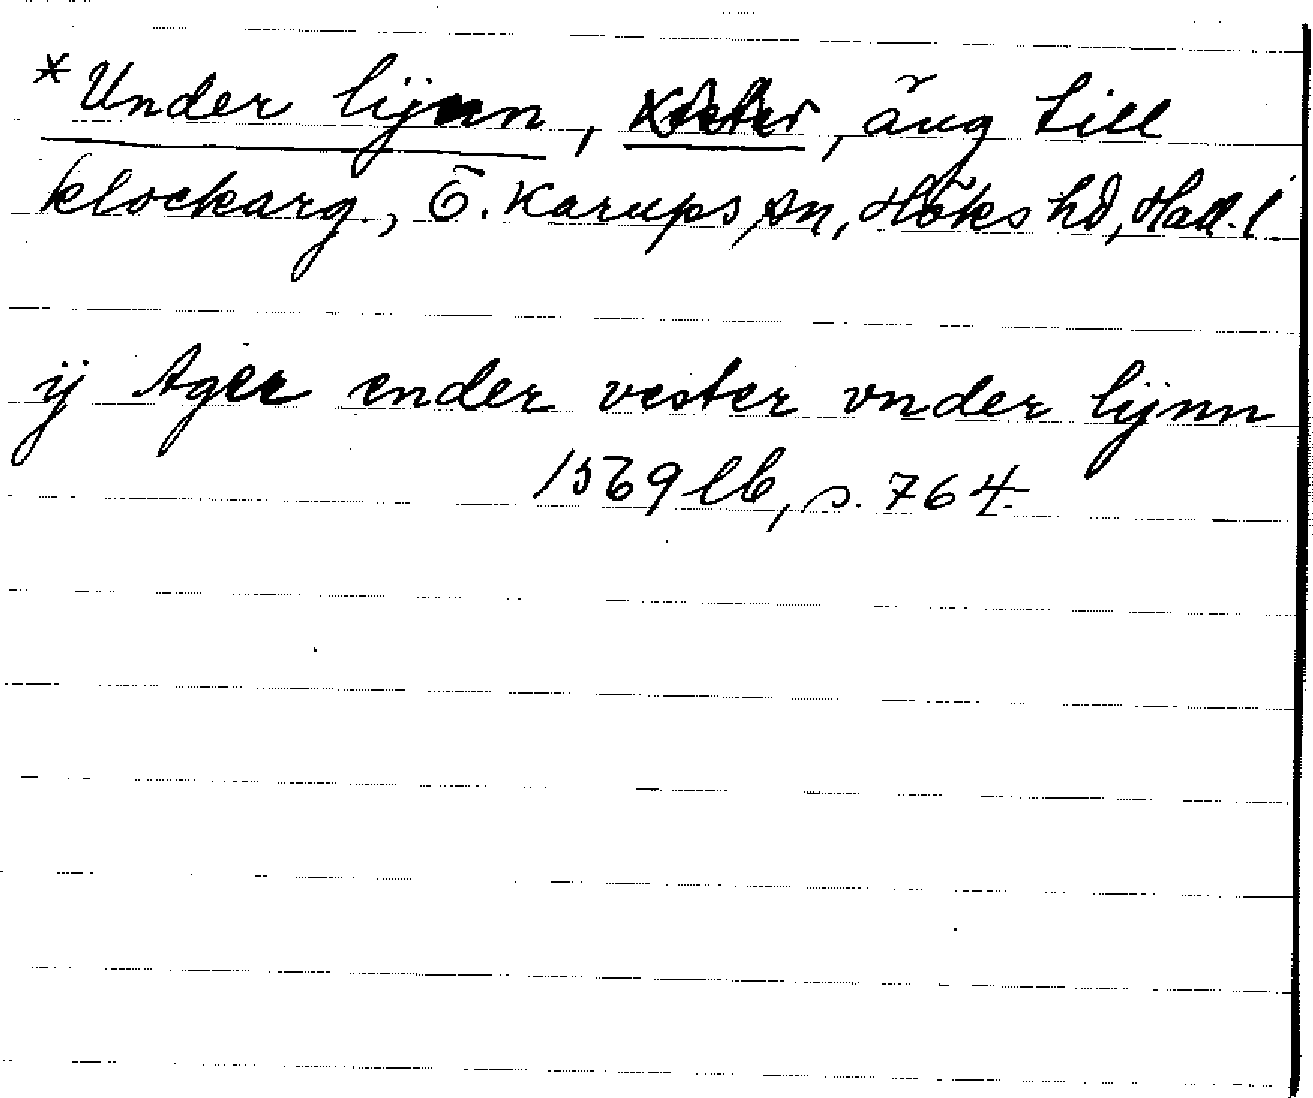 *Under lijnn, Väster, äng till
klockarg., Ö. Karups sn, Höks hd, Hall. l
ij Ager ender vester vnder lijnn
1569 lb, s. 764.